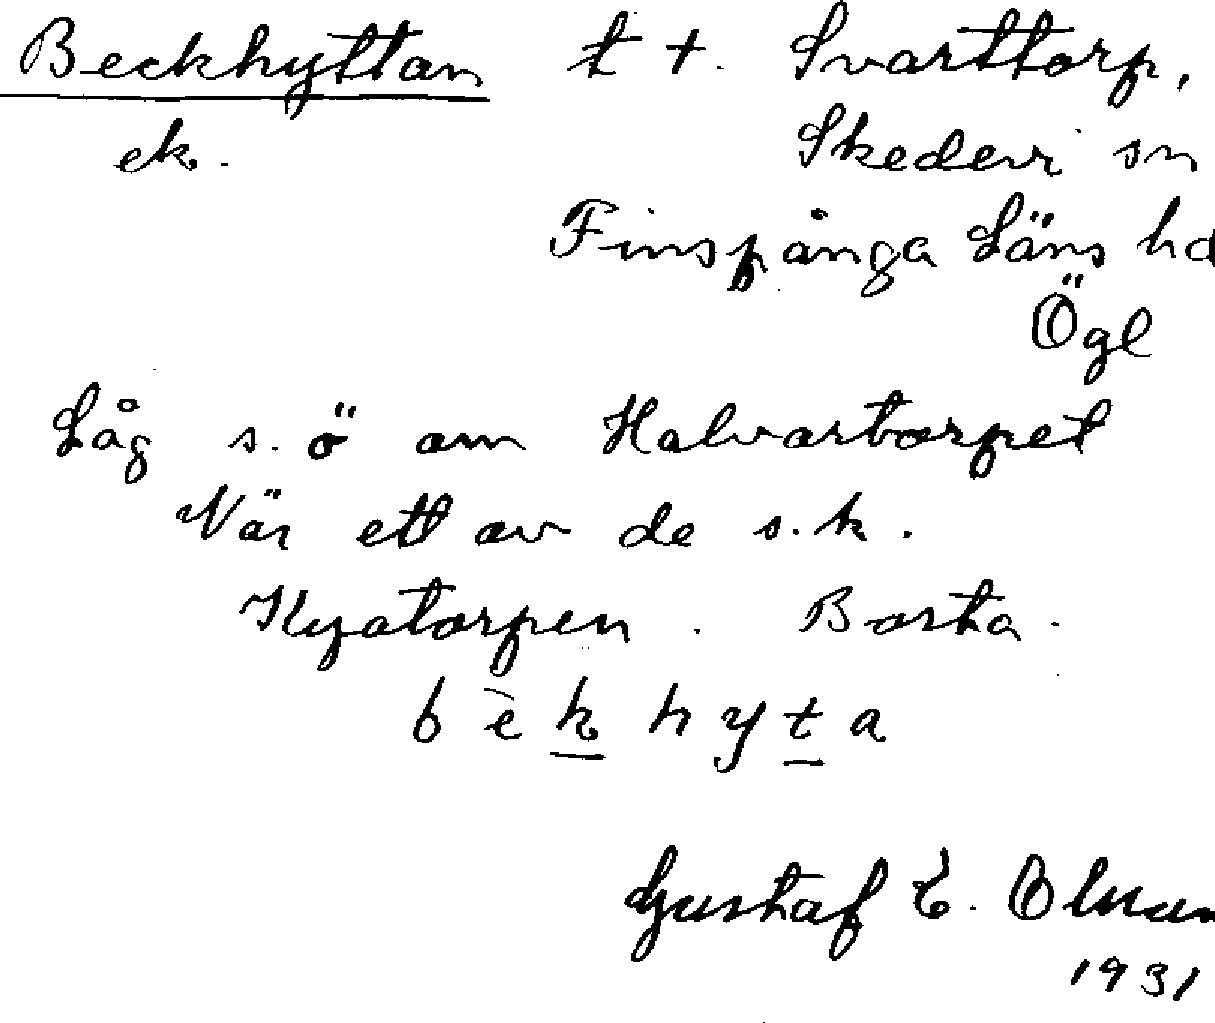 Beckhyttan t t. Svarttorp,
ek. Skedevi sn
Finspånga Läns hd
Ögl
Låg s. ö om Halvartorpet
Var ett av de s.k.
Kyatorpen. Borta.
b è k h y t a
Gustaf E. Olsson
1931